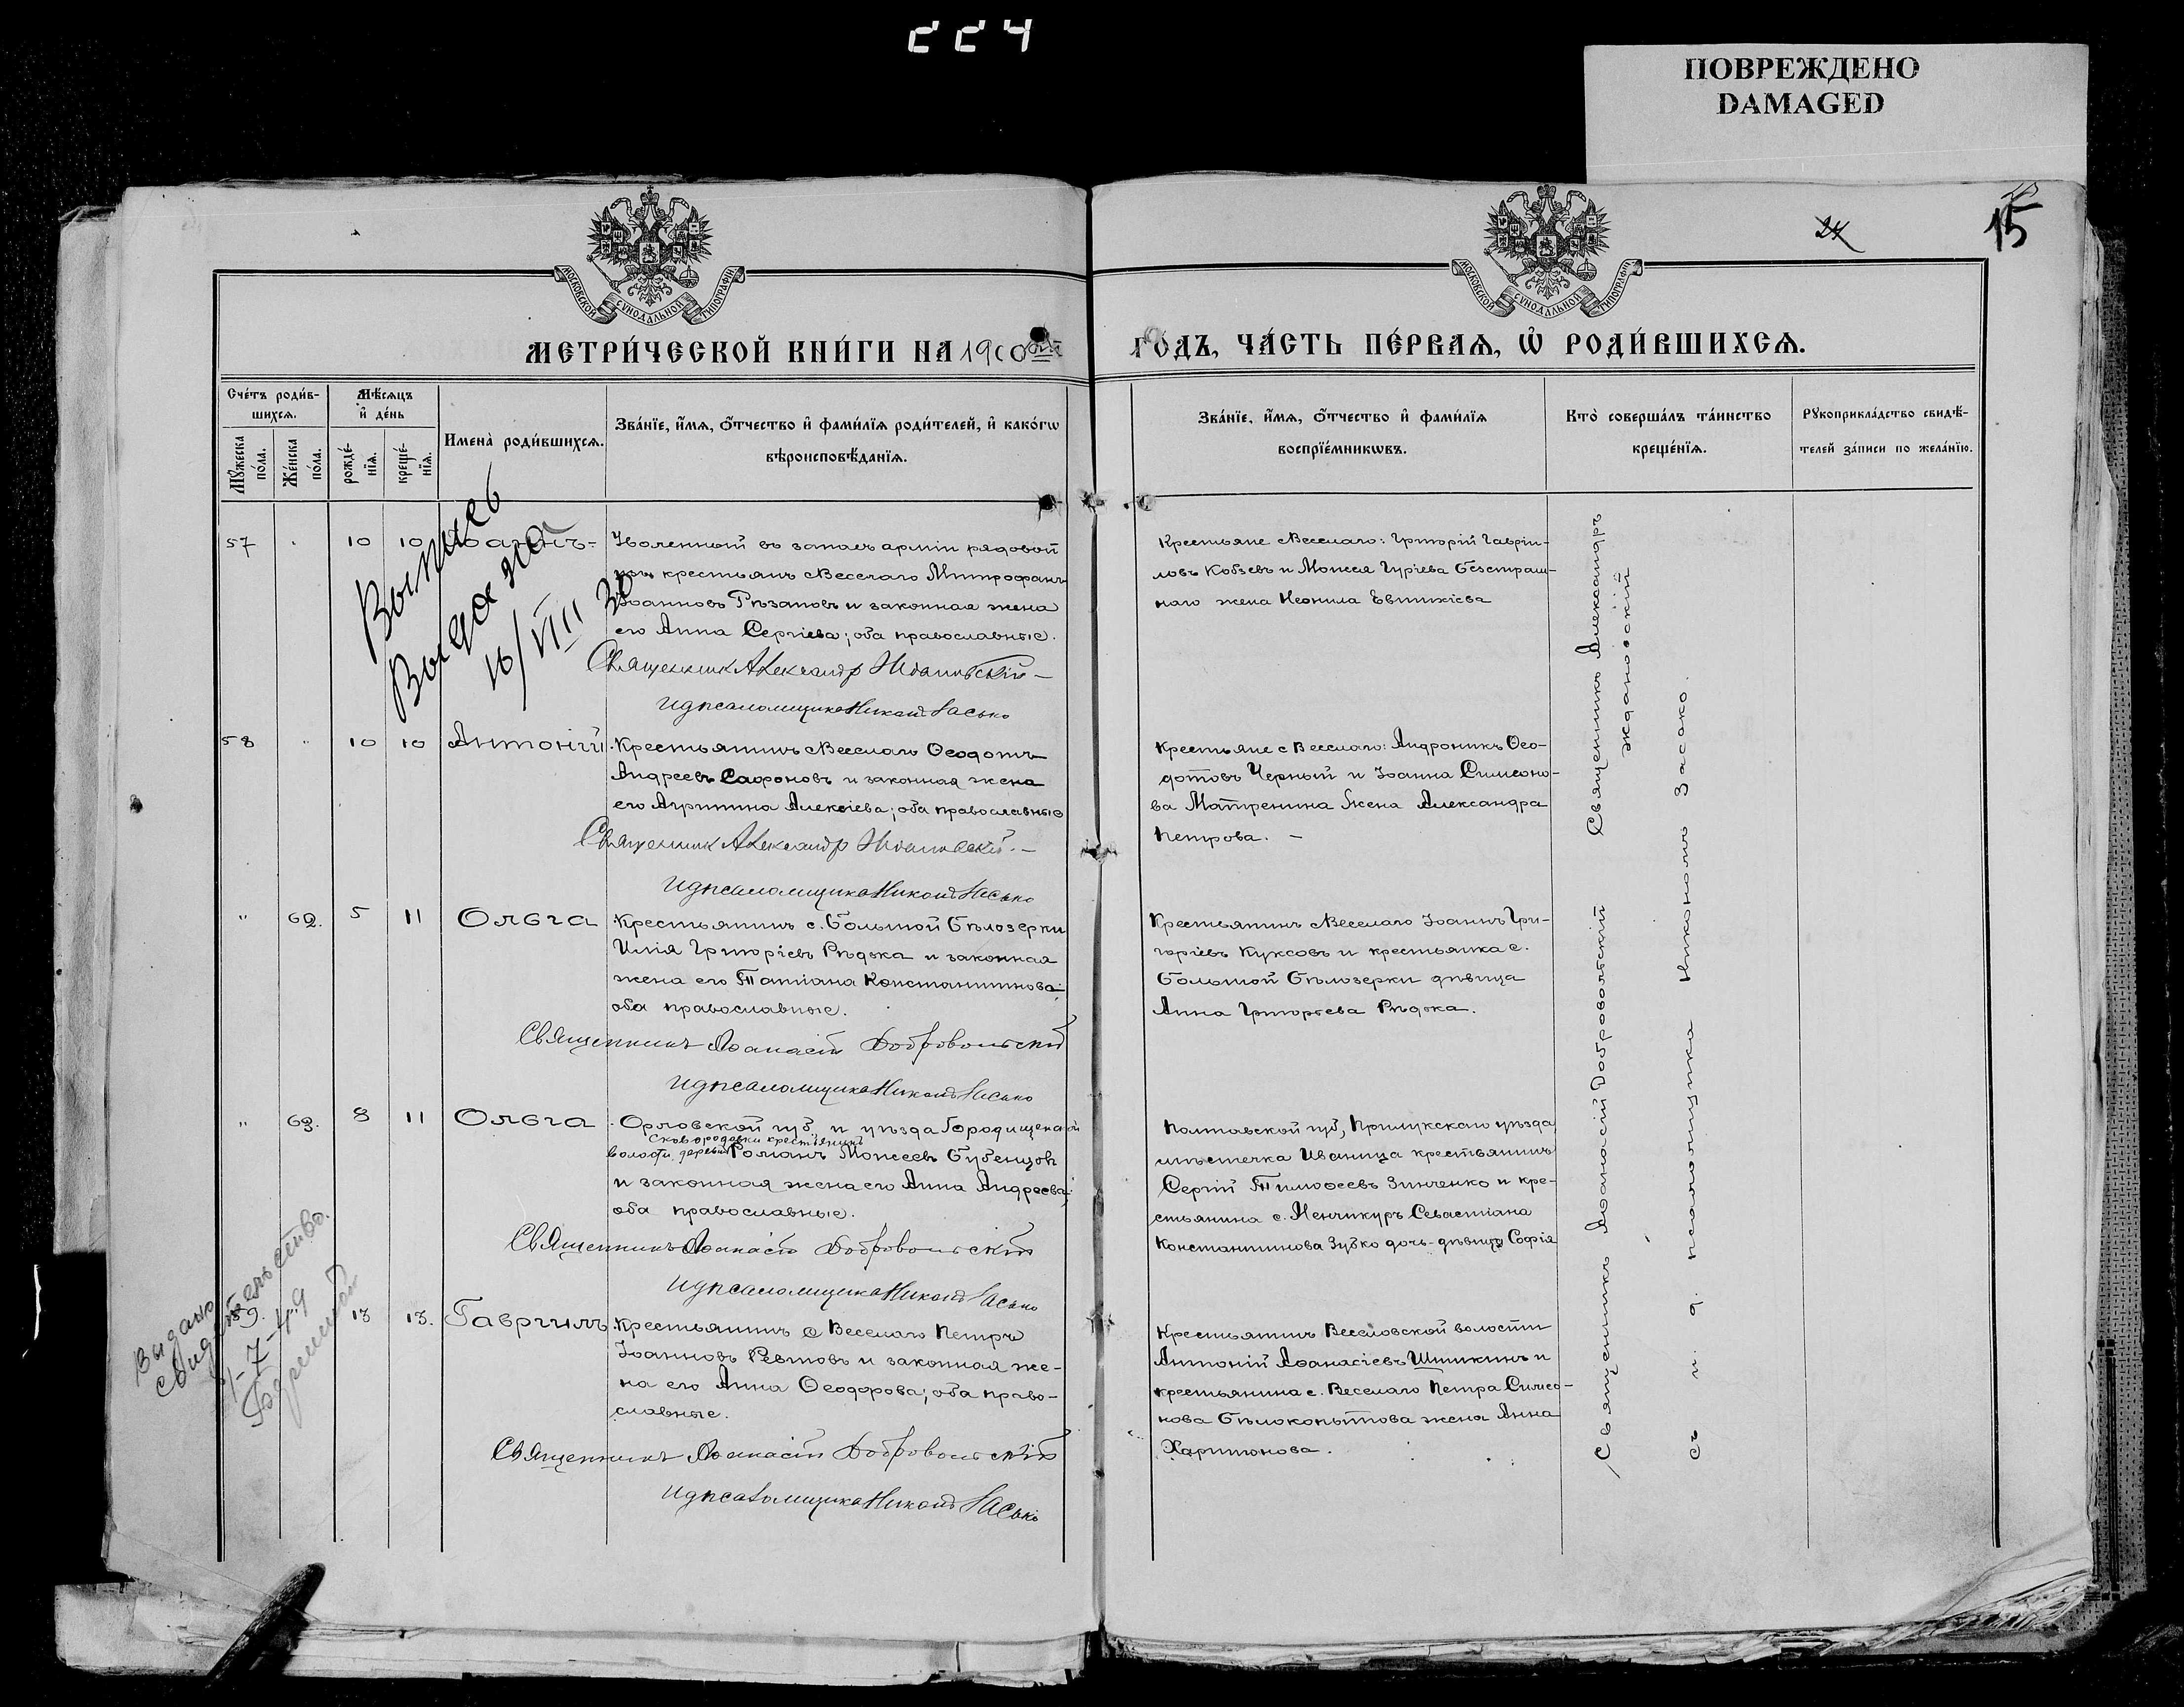 224
ПОВРЕЖДЕНО
DAMAGED
24
15
МОСКОВСКОЙ СУНОДАЛЬНОЙ ТИПОГРАФІИ
МОСКОВСКОЙ СУНОДАЛЬНОЙ ТИПОГРАФІИ
МЕТРИ́ЧЕСКОЙ КНИ́ГИ НА 1900
ГОДЪ, ЧА́СТЬ ПЕ́РВАѦ, Ѡ҆ РОДИ́ВШИХСѦ.
Сче́тъ роди́в-
шихсѧ.
Мꙋ́жеска по́ла.
Же́нска по́ла.
Мѣ́сѧцъ
и҆ де́нь
рожде́-
нїѧ.
креще́-
нїѧ.
Имена̀ роди́вшихсѧ.
Зва́нїе, и҆́мѧ, ѻ҆́тчество и҆ фами́лїѧ роди́телей, и҆ како́гѡ
вѣроисповѣ́данїѧ.
Зва́нїе, и҆́мѧ, ѻ҆́тчество и҆ фами́лїѧ
воспрїе́мникѡвъ.
Кто̀ соверша́лъ та́инство
креще́нїѧ.
Рꙋкоприкла́дство свидѣ́-
телей за́писи по жела́нїю.
57 10 10 Іоаннъ.
Уволенный въ запасъ арміи рядовой
изъ крестьянъ с Веселаго Митрофанъ
Іоанновъ Рѣзановъ и законная жена
его Анна Сергіева; оба православные.
Священник Александр Ждановскій
и д псаломщика Никонъ Засько
Выдана
10/VIII 30
Крестьяне с Веселаго: Григорій Гавріи-
ловъ Кобзевъ и Моисея Гуріева Безстраш-
наго жена Неонила Евтихіева
58 " 10 10 Антоній
Крестьянинъ с Веселаго Ѳеодотъ
Андреевъ Сафоновъ и законная жена
его Агриппина Алексіева; оба православные
Священник Александр Ждановскій.
и д псаломщика Никонъ Засько
Крестьяне с Веселаго: Андроникъ Ѳео-
дотовъ Черный и Іоанна Симеоно-
ва Матренина жена Александра
Петрова.
" 62. 5 11 Ольга
Крестьянинъ с. Большой Бѣлозерки
Илія Григоріевъ Рѣдька и законная
жена его Татіана Константинова;
оба православные.
Священникъ Аѳанасій Добровольскій
и д псаломщика Никонъ Засько
Крестьянинъ с Веселаго Іоаннъ Гри-
горіевъ Куксовъ и крестьянка с.
Большой Бѣлозерки дѣвица
Анна Григорьева Рѣдька.
" 63. 8 11 Ольга
Орловской губ. и уѣзда Городищенской
волости деревни Сковородовки крестьянинъ
Романъ Моисеевъ Бубенцовъ
и законная жена его Анна Андреева;
оба православные.
Священникъ Аѳанасій Добровольскій
и д псаломщика Никонъ Засько
Полтавской губ, Прилукскаго уѣзда
мѣстечка Иваница крестьянинъ
Сергій Тимоѳеевъ Зинченко и кре-
стьянина с. Менчикуръ Севастіана
Константинова Зубко дочь-дѣвица Софія
59. " 13 13. Гавріилъ
Крестьянинъ с Веселаго Петръ
Іоанновъ Ревтовъ и законная же-
на его Анна Ѳеодорова; оба право-
славные.
Священникъ Аѳанасій Добровольскій
и д псаломщика Никонъ Засько
Выдано
свидѣтельство.
1-7-49
Крестьянинъ Веселовской волости
Антоній Аѳанасіевъ Шишкинъ и
крестьянина с. Веселаго Петра Симео-
нова Бѣлокопытова жена Анна
Харитонова.
Священникъ Аѳанасій Добровольскій Священникъ Александръ
Ждановскій
съ и. д. псаломщика Никономъ Засько.